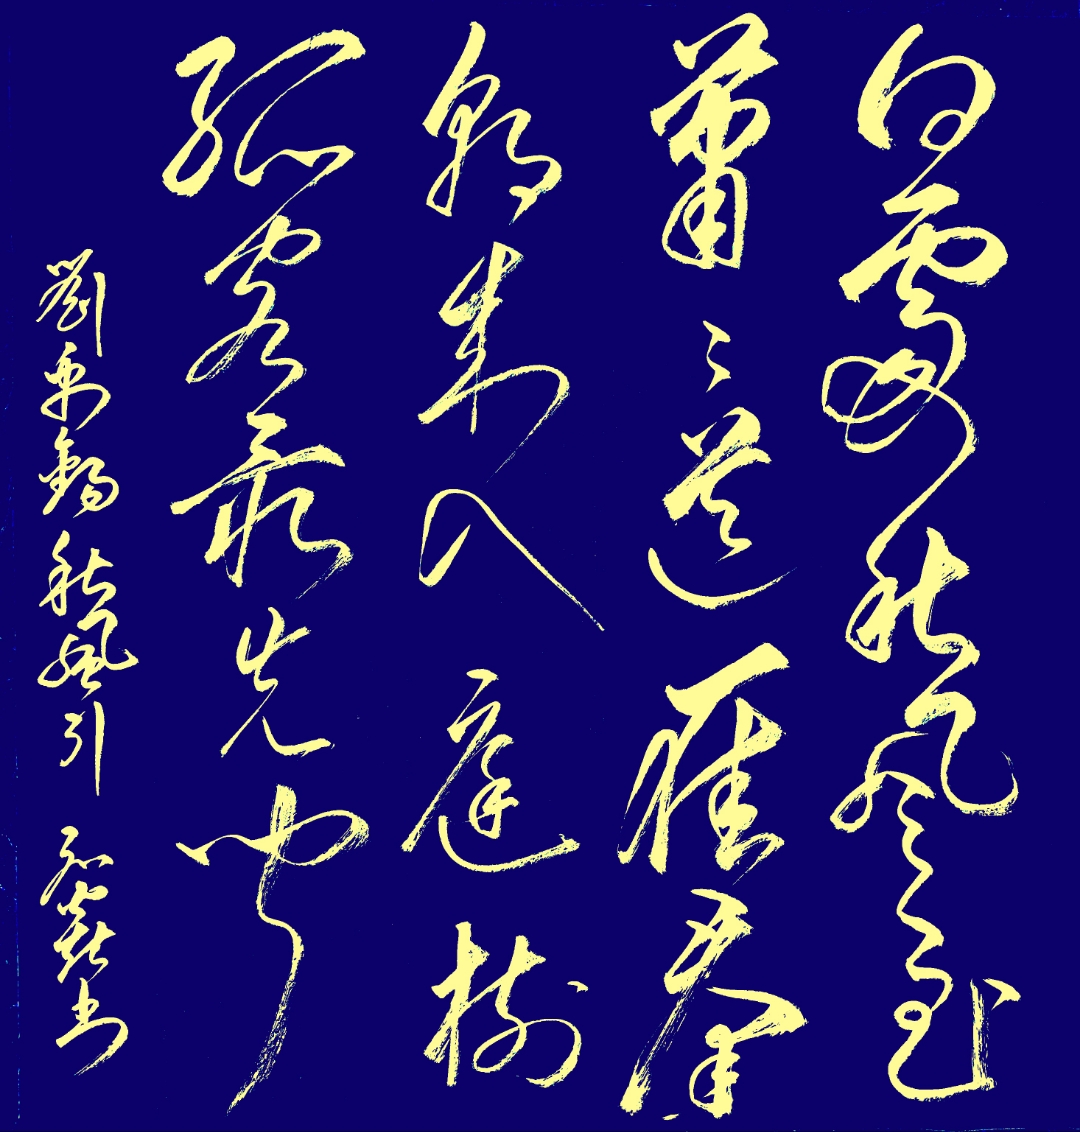 何處秋風至
蕭〻送雁羣
朝来入庭樹
孤客最先聞
劉禹錫秋風引 書